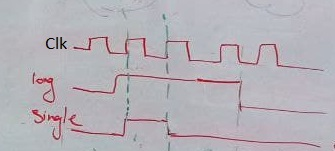 Clk
long
Single